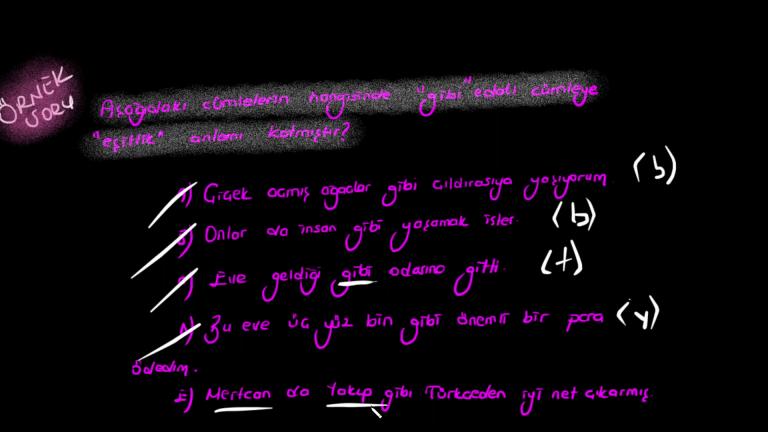 ÖRNEK
SORU
Aşağıdaki cümlelerin hangisinde "gibi" edatı cümleye
"eşitlik" anlamı katmıştır?
A) Çiçek açmış ağaçlar gibi çıldırasıya yaşıyorum (b)
B) Onlar da insan gibi yaşamak ister. (b)
C) Eve geldiği gibi odasına gitti. (t)
D) Bu eve üç yüz bin gibi önemli bir para (y)
ödedim.
E) Mertcan da Yakup gibi Türkçeden iyi net çıkarmış.